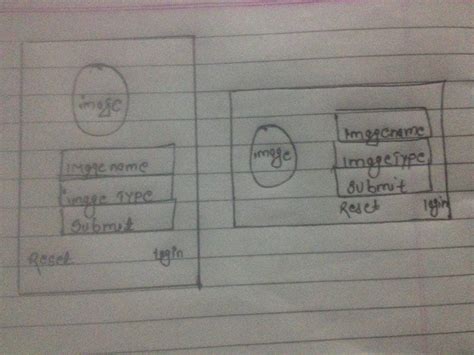 image
imagename
image TYPE
Submit
Reset login
image
Imagename
ImageType
Submit
Reset login